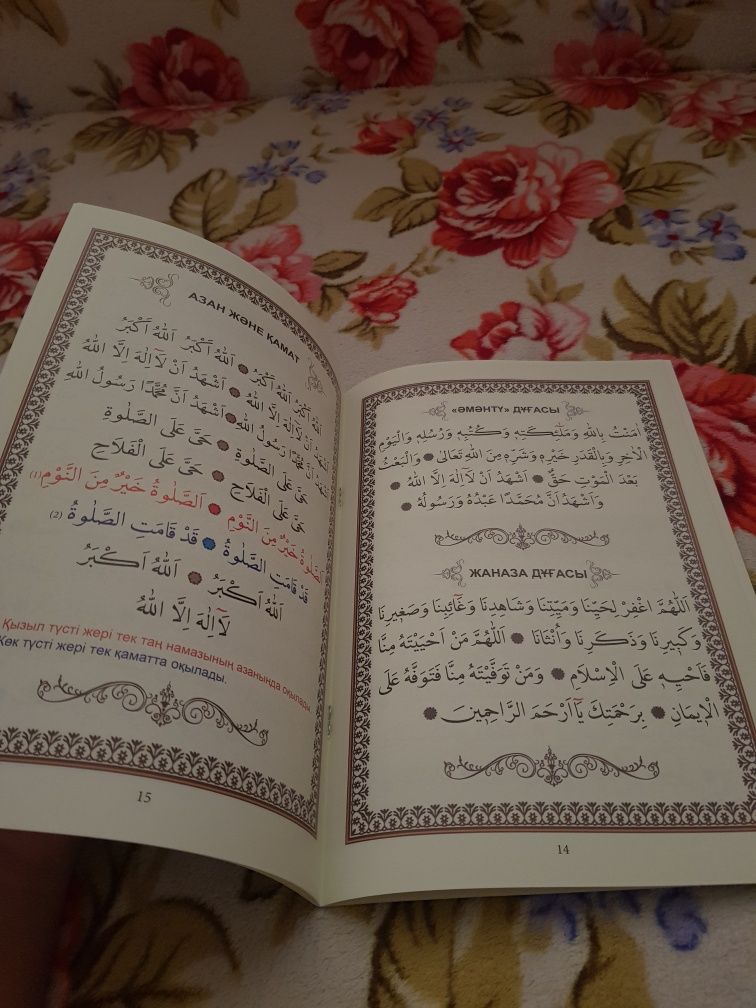 «ӘМӘНТҮ» ДҰҒАСЫ
اٰمَنْتُ بِاللّٰهِ وَمَلٰٓئِكَتِهٖ وَكُتُبِهٖ وَرُسُلِهٖ وَالْيَوْمِ
الْاٰخِرِ وَبِالْقَدَرِ خَيْرِهٖ وَشَرِّهٖ مِنَ اللّٰهِ تَعَالٰى ۞ وَالْبَعْثُ
بَعْدَ الْمَوْتِ حَقٌّ ۞ اَشْهَدُ اَنْ لَٓا اِلٰهَ اِلَّا اللّٰهُ ۞
وَاَشْهَدُ اَنَّ مُحَمَّدًا عَبْدُهُ وَرَسُولُهُ ۞
ЖАНАЗА ДҰҒАСЫ
اَللّٰهُمَّ اغْفِرْ لِحَيِّنَا وَمَيِّتِنَا وَشَاهِدِنَا وَغَٓائِبِنَا وَصَغ۪يرِنَا
وَكَب۪يرِنَا وَذَكَرِنَا وَاُنْثَانَا ۞ اَللّٰهُمَّ مَنْ اَحْيَيْتَهُ مِنَّا
فَاَحْيِهٖ عَلَى الْاِسْلَامِ ۞ وَمَنْ تَوَفَّيْتَهُ مِنَّا فَتَوَفَّهُ عَلَى
الْا۪يمَانِ ۞ بِرَحْمَتِكَ يَٓا اَرْحَمَ الرَّاحِم۪ينَ ۞
14
АЗАН ЖӘНЕ ҚАМАТ
اَللّٰهُ اَكْبَرُ اَللّٰهُ اَكْبَرُ ۞ اَللّٰهُ اَكْبَرُ اَللّٰهُ اَكْبَرُ
اَشْهَدُ اَنْ لَٓا اِلٰهَ اِلَّا اللّٰهُ ۞ اَشْهَدُ اَنْ لَٓا اِلٰهَ اِلَّا اللّٰهُ
اَشْهَدُ اَنَّ مُحَمَّدًا رَسُولُ اللّٰهِ ۞ اَشْهَدُ اَنَّ مُحَمَّدًا رَسُولُ اللّٰهِ
حَىَّ عَلَى الصَّلٰوةِ ۞ حَىَّ عَلَى الصَّلٰوةِ
حَىَّ عَلَى الْفَلَاحِ ۞ حَىَّ عَلَى الْفَلَاحِ
اَلصَّلٰوةُ خَيْرٌ مِنَ النَّوْمِ ۞ اَلصَّلٰوةُ خَيْرٌ مِنَ النَّوْمِ (1)
قَدْ قَامَتِ الصَّلٰوةُ ۞ قَدْ قَامَتِ الصَّلٰوةُ (2)
اَللّٰهُ اَكْبَرُ ۞ اَللّٰهُ اَكْبَرُ
لَٓا اِلٰهَ اِلَّا اللّٰهُ
Қызыл түсті жері тек таң намазының азанында оқылады
Көк түсті жері тек қаматта оқылады.
15